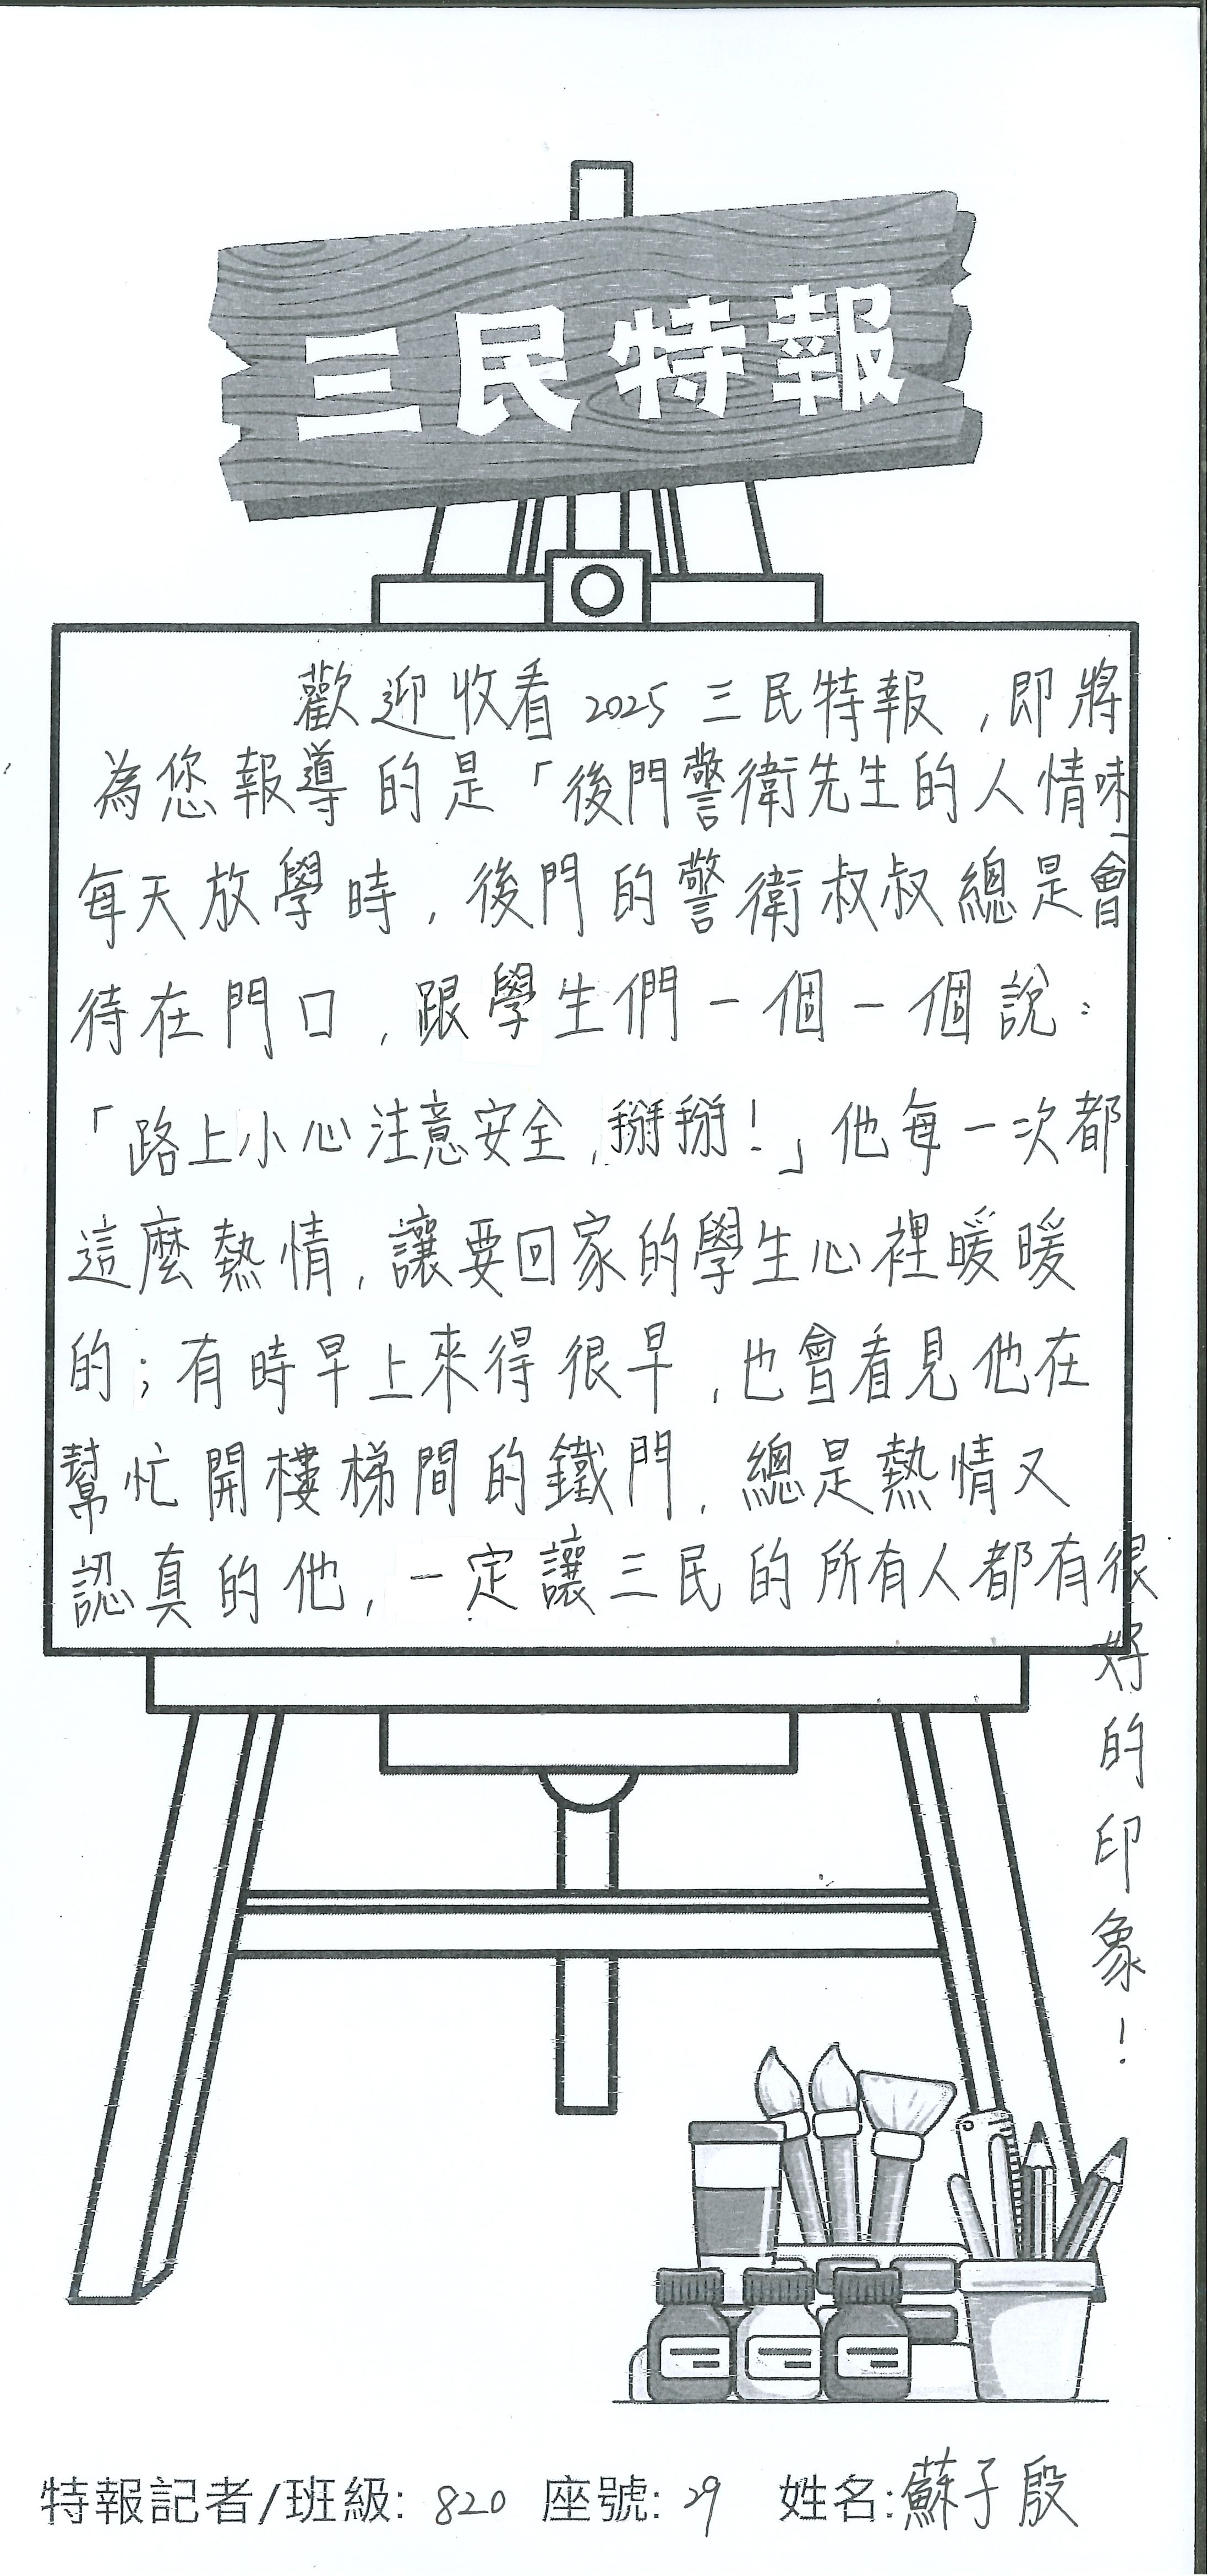 三民特報
歡迎收看2025三民特報，即將
為您報導的是「後門警衛先生的人情味」
每天放學時，後門的警衛叔叔總是會
待在門口，跟學生們一個一個說：
「路上小心注意安全，掰掰！」他每一次都
這麼熱情，讓要回家的學生心裡暖暖
的；有時早上來得很早，也會看見他在
幫忙開樓梯間的鐵門，總是熱情又
認真的他，一定讓三民的所有人都有很
好的印象！
特報記者/班級: 820 座號: 29 姓名: 蘇子殷